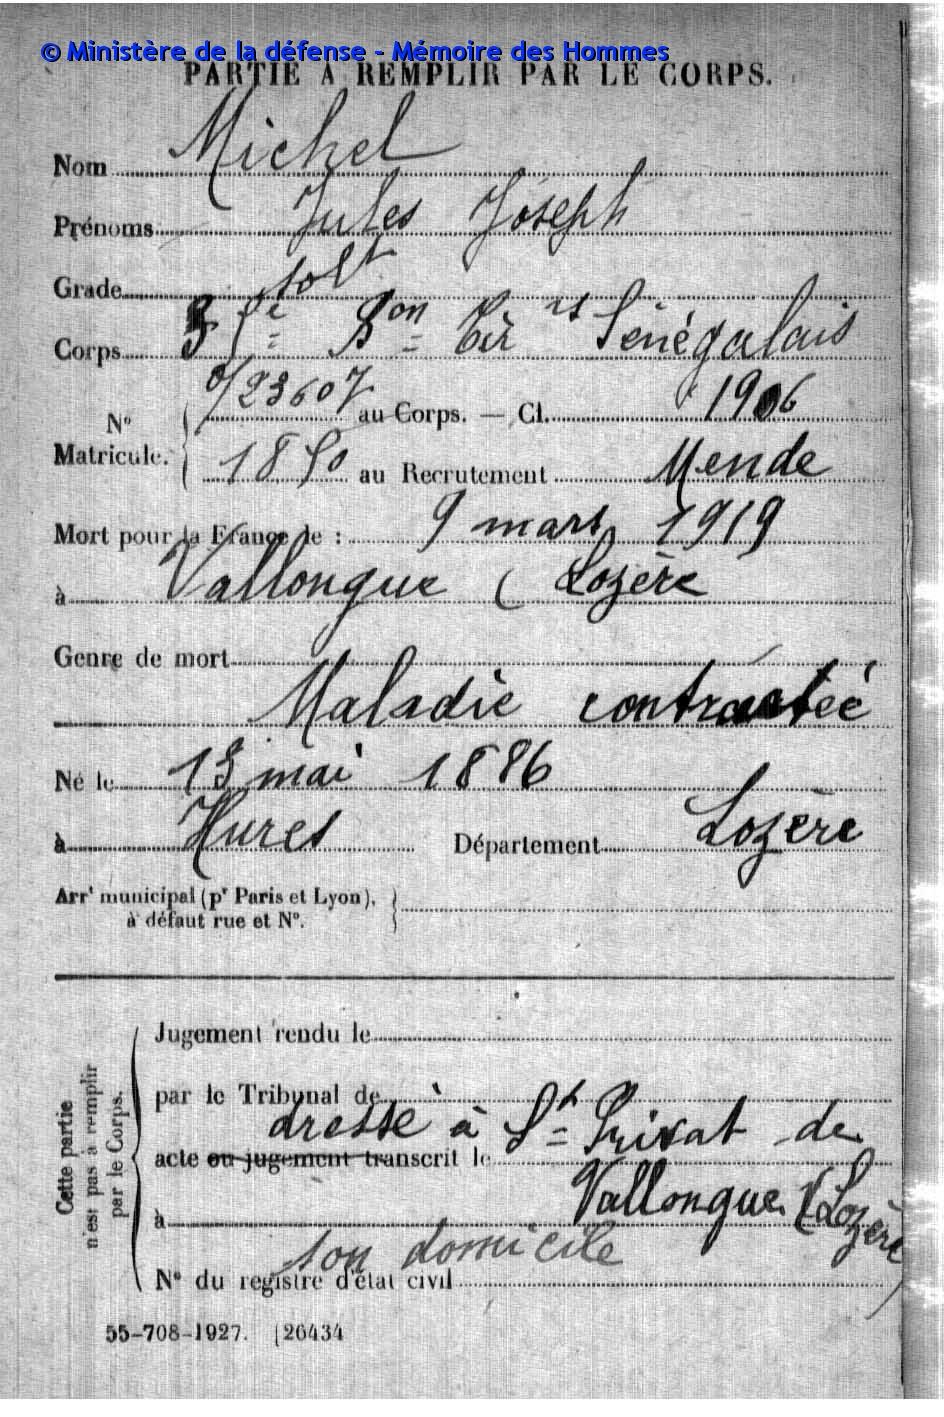 © Ministère de la défense - Mémoire des Hommes
PARTIE A REMPLIR PAR LE CORPS.
Nom Michel
Prénoms Jules Joseph
Grade solt
Corps Bon Tir rs Sénégalais
No Matricule. 0/23607 au Corps. — Cl. 1906
1850 au Recrutement Mende
Mort pour la France le : 9 mars 1919
à Vallongue ( Lozère
Genre de mort
Maladie contractée
Né le 13 mai 1886
à Hures Département Lozère
Arrt municipal (pr Paris et Lyon),
à défaut rue et No.
Cette partie
n'est pas à remplir
par le Corps.
Jugement rendu le
par le Tribunal de
dressé à St Privat de
acte ou jugement transcrit le
Vallongue (Lozère
à
son domicile
No du registre d'état civil
55-708-1927. [26434